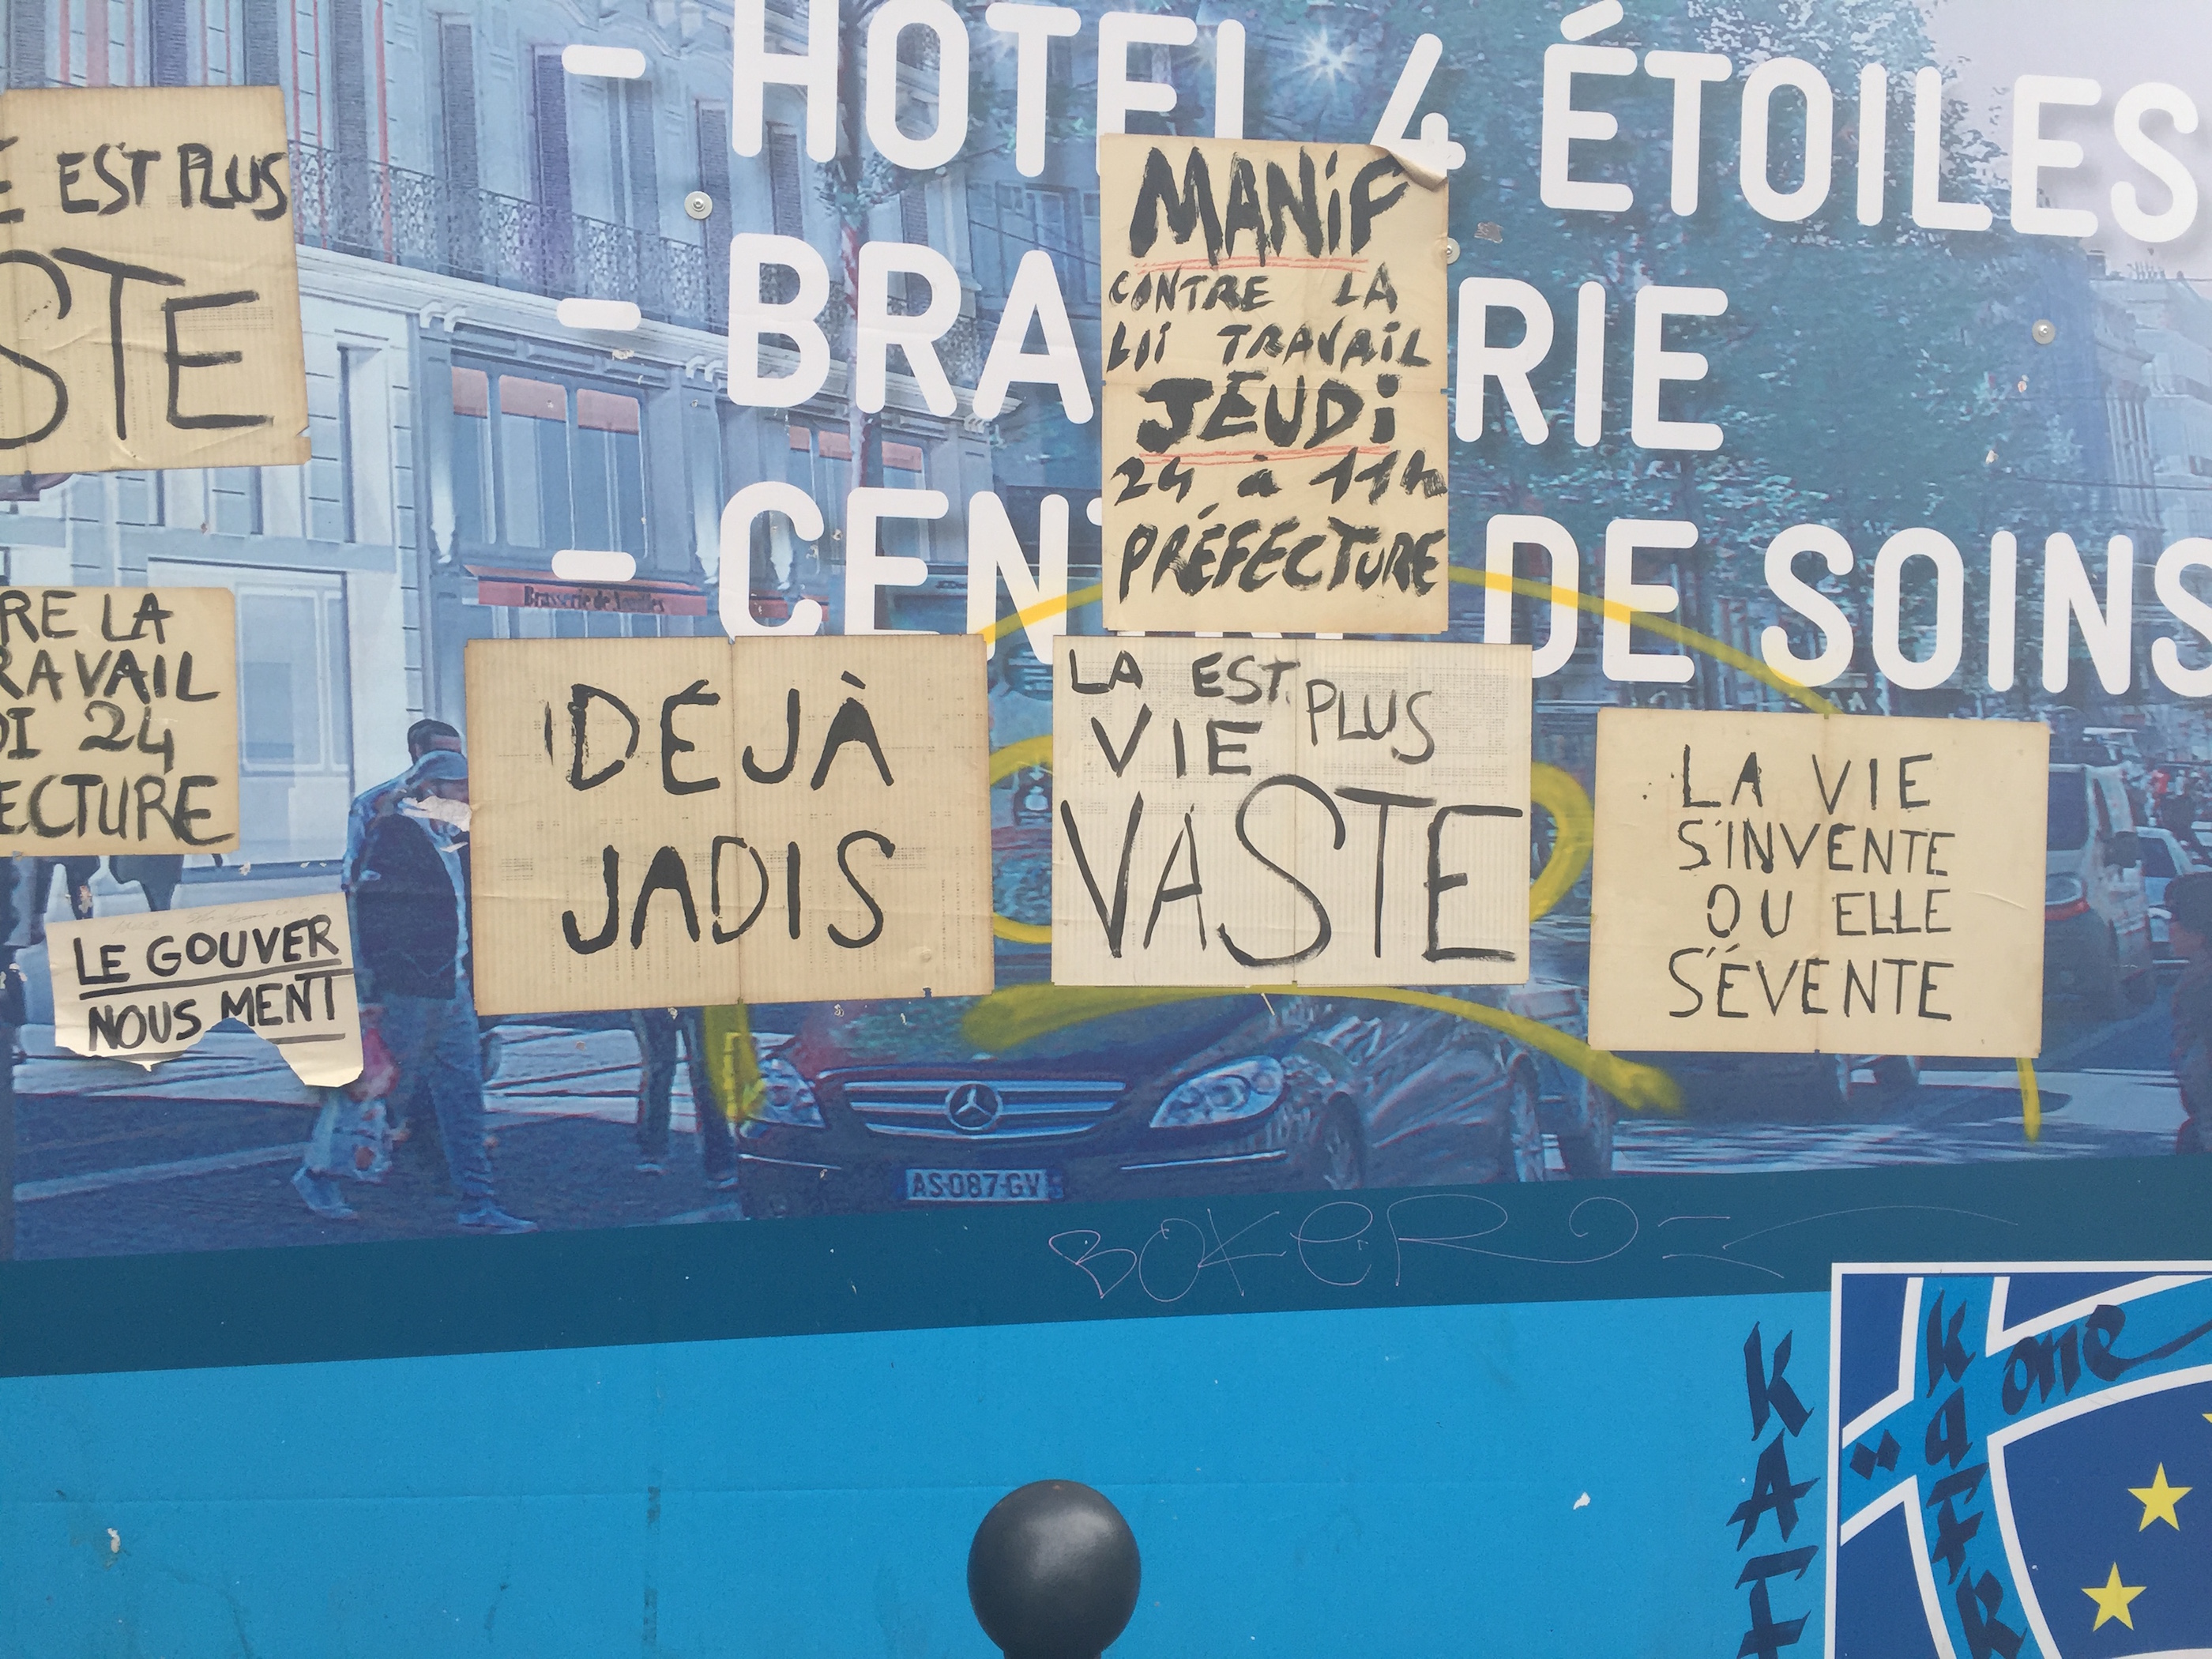 - HOTEL 4 ÉTOILES
- BRA RIE
- CENTRE DE SOINS
E EST PLUS
STE
MANiF
CONTRE LA
LOi TRAVAiL
JEUDi
24 à 11h
PRÉFÉCTURE
RE LA
RAVAIL
DI 24
ECTURE
LE GOUVER
NOUS MENT
DÉJÀ
JADIS
LA EST PLUS
VIE
VASTE
LA VIE
S'INVENTE
OU ELLE
S'ÉVENTE
Brasserie de
AS-087-GV
BOKER
KAF
KaFR
one